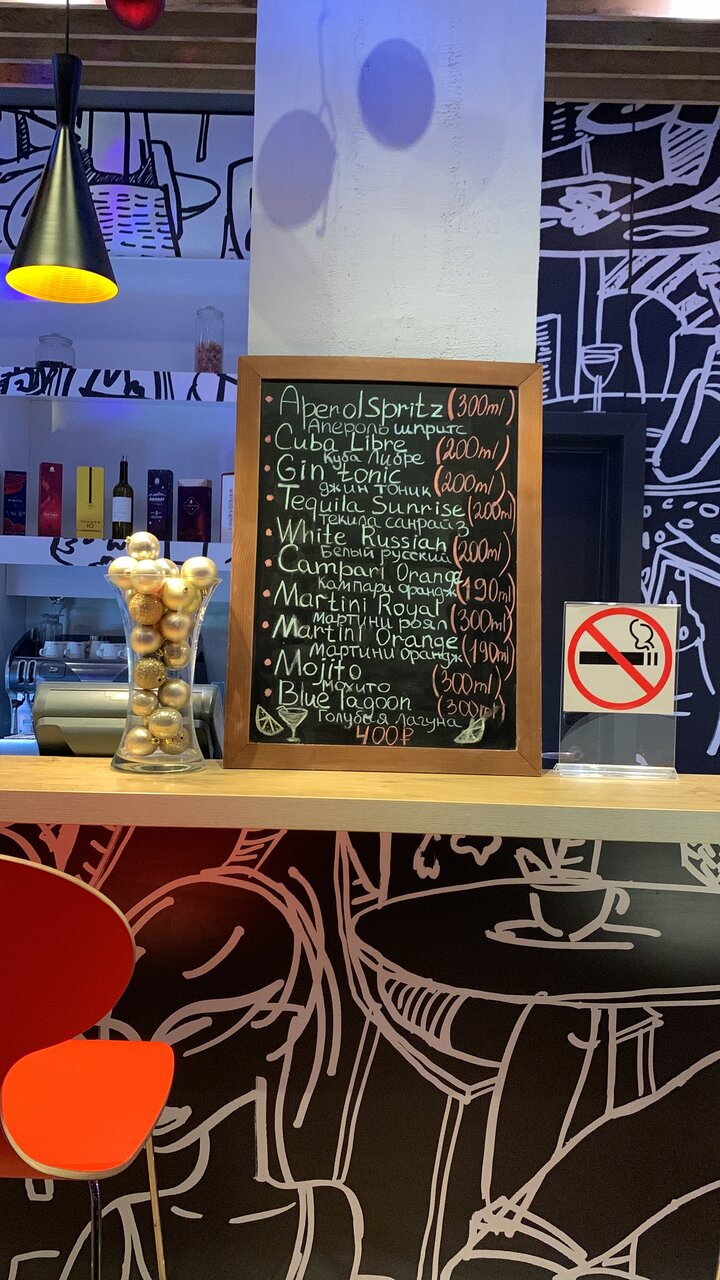 Aperol Spritz (300ml)
Апероль шпритс
Cuba Libre (200ml)
Куба Либре
Gin tonic (200ml)
джин тоник
Tequila Sunrise (200ml)
текила санрайз
White Russian (200ml)
Белый русский
Campari Orange (190ml)
Кампари орандж
Martini Royal (300ml)
мартини роял
Martini Orange (190ml)
Мартини орандж
Mojito (300ml)
мохито
Blue lagoon (300ml)
Голубая лагуна
400₽
COURVOISIER